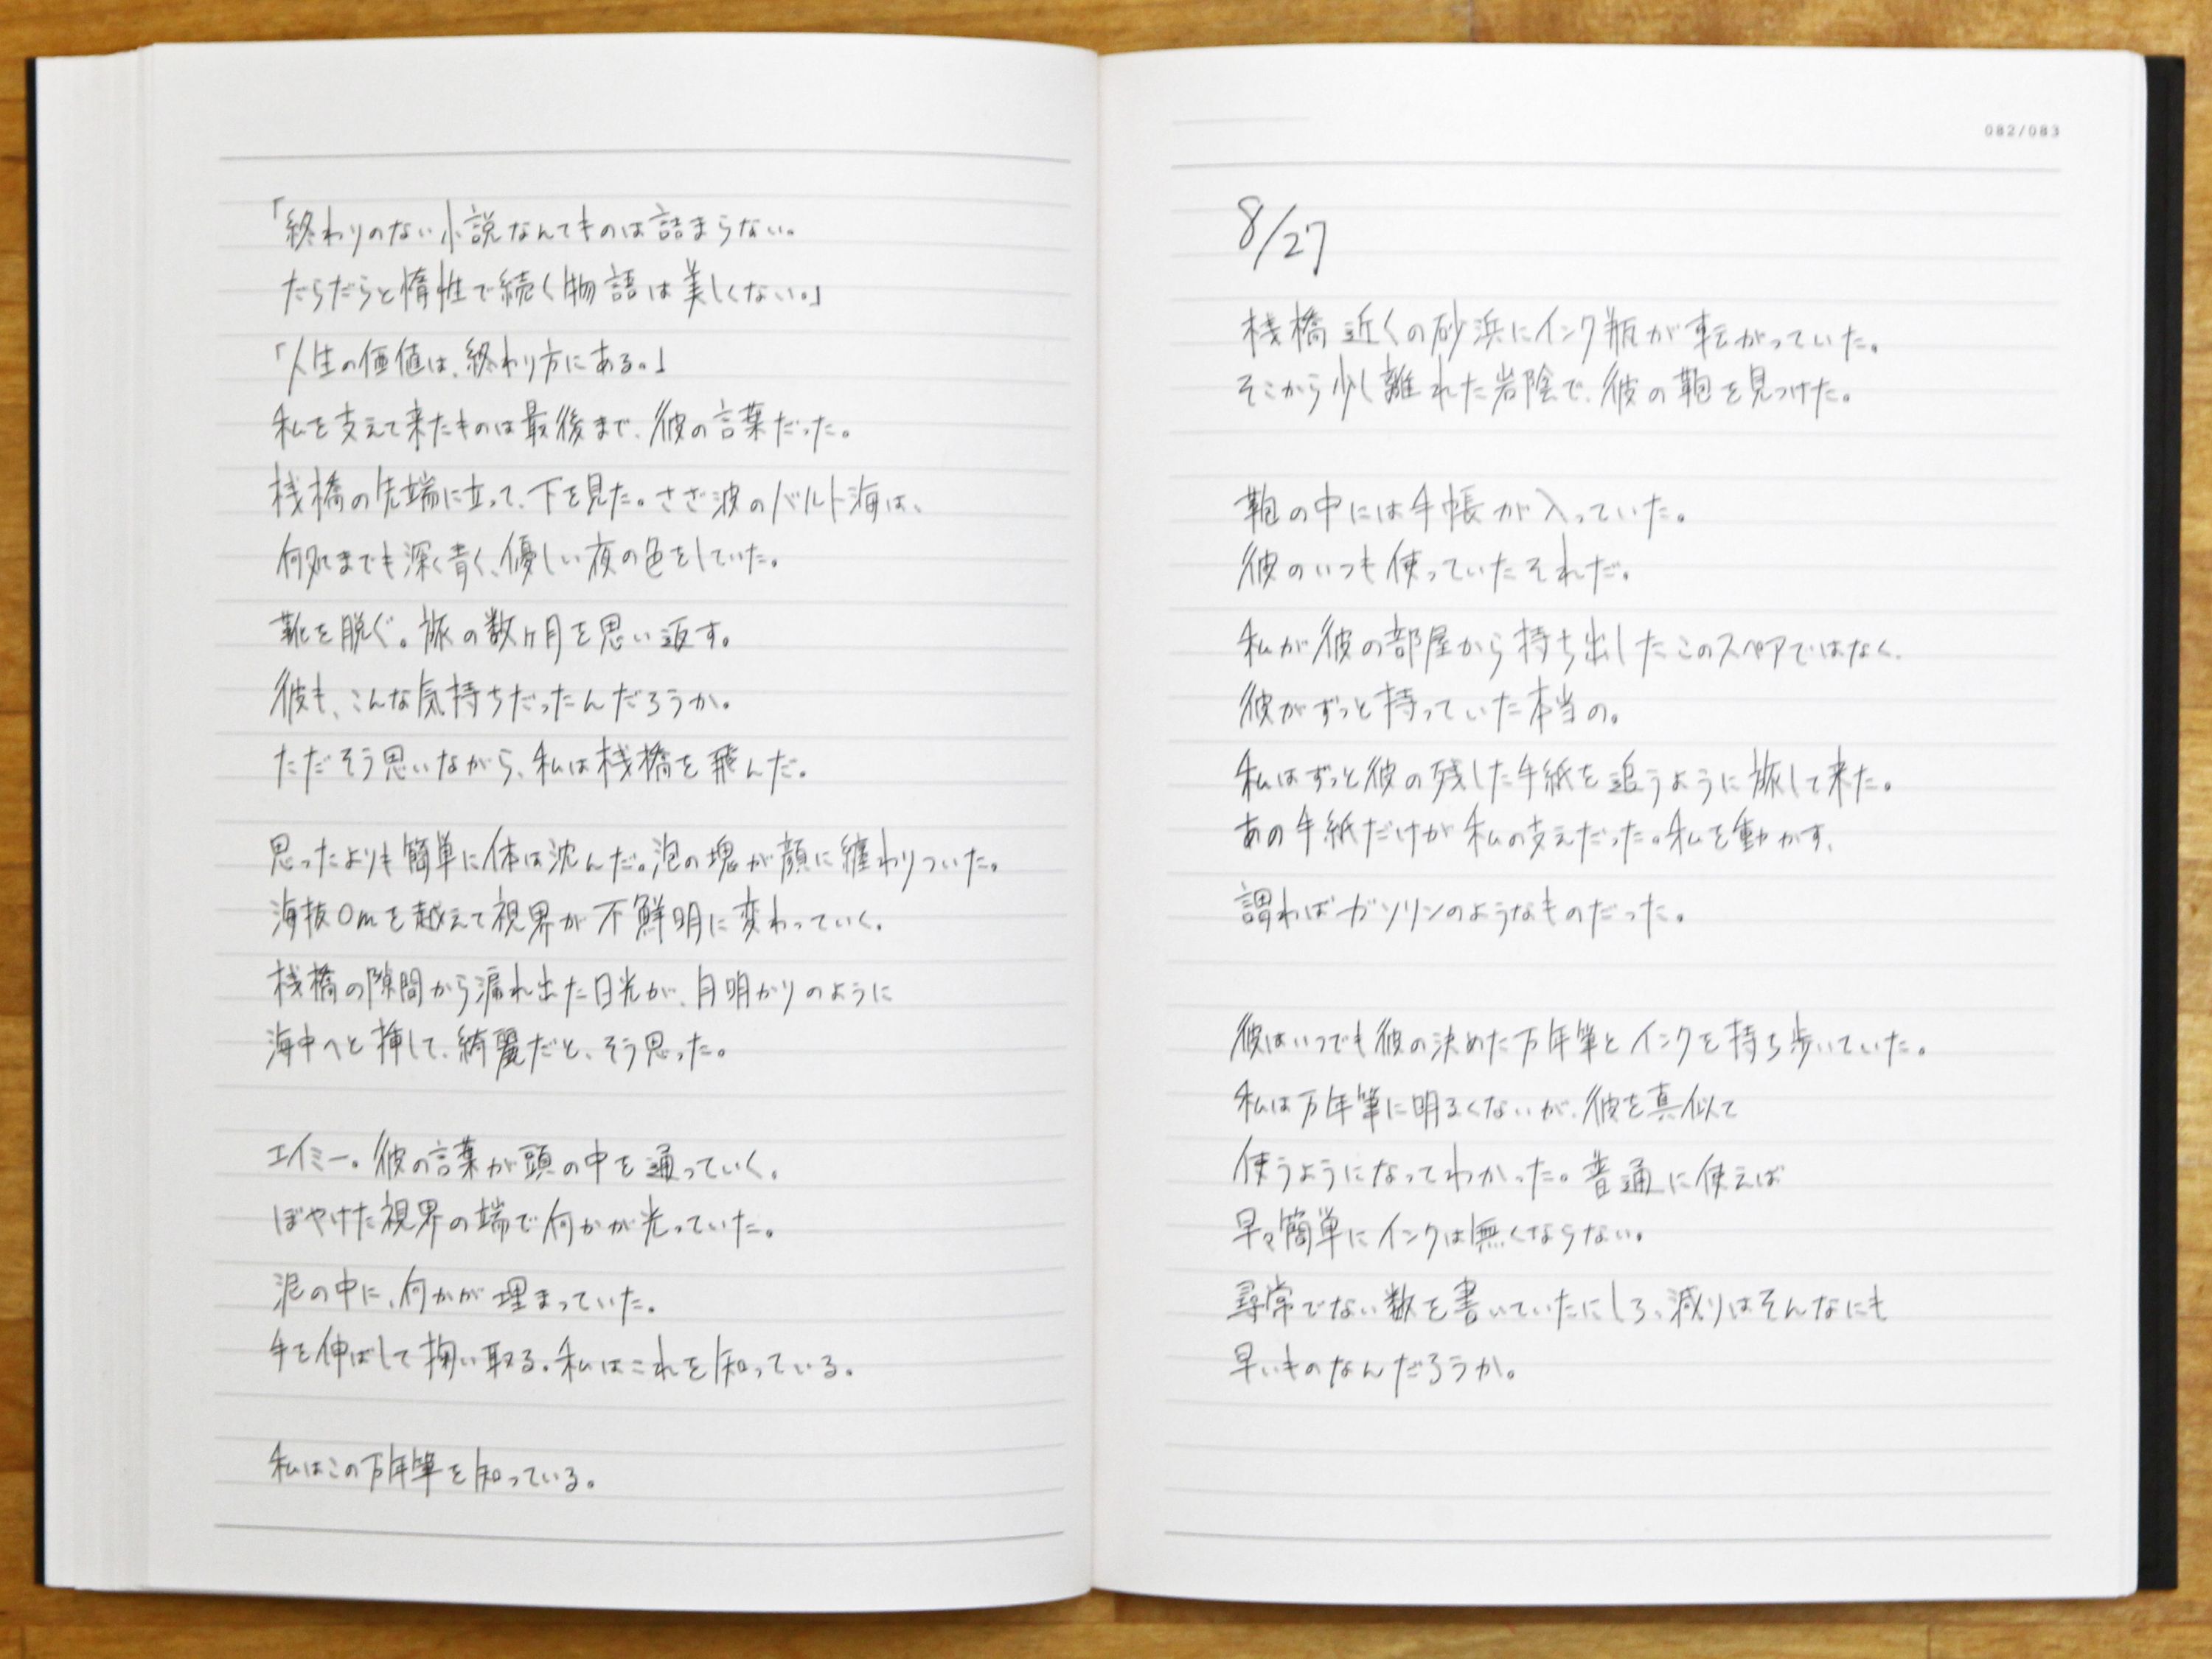 「終わりのない小説なんてものは詰まらない。
だらだらと惰性で続く物語は美しくない。」
「人生の価値は、終わり方にある。」
私を支えて来たものは最後まで、彼の言葉だった。
桟橋の先端に立って、下を見た。さざ波のバルト海は、
何処までも深く青く、優しい夜の色をしていた。
靴を脱ぐ。旅の数ヶ月を思い返す。
彼も、こんな気持ちだったんだろうか。
ただそう思いながら、私は桟橋を飛んだ。
思ったよりも簡単に体は沈んだ。泡の塊が顔に纏わりついた。
海抜0mを越えて視界が不鮮明に変わっていく。
桟橋の隙間から漏れ出た日光が、月明かりのように
海中へと挿して、綺麗だと、そう思った。
エイミー。彼の言葉が頭の中を通っていく。
ぼやけた視界の端で何かが光っていた。
泥の中に、何かが埋まっていた。
手を伸ばして掬い取る。私はこれを知っている。
私はこの万年筆を知っている。
082/083
8/27
桟橋近くの砂浜にインク瓶が転がっていた。
そこから少し離れた岩陰で、彼の鞄を見つけた。
鞄の中には手帳が入っていた。
彼のいつも使っていたそれだ。
私が彼の部屋から持ち出したこのスペアではなく、
彼がずっと持っていた本当の。
私はずっと彼の残した手紙を追うように旅して来た。
あの手紙だけが私の支えだった。私を動かす、
謂わばガソリンのようなものだった。
彼はいつでも彼の決めた万年筆とインクを持ち歩いていた。
私は万年筆に明るくないが、彼を真似て
使うようになってわかった。普通に使えば
早々簡単にインクは無くならない。
尋常でない数を書いていたにしろ、減りはそんなにも
早いものなんだろうか。